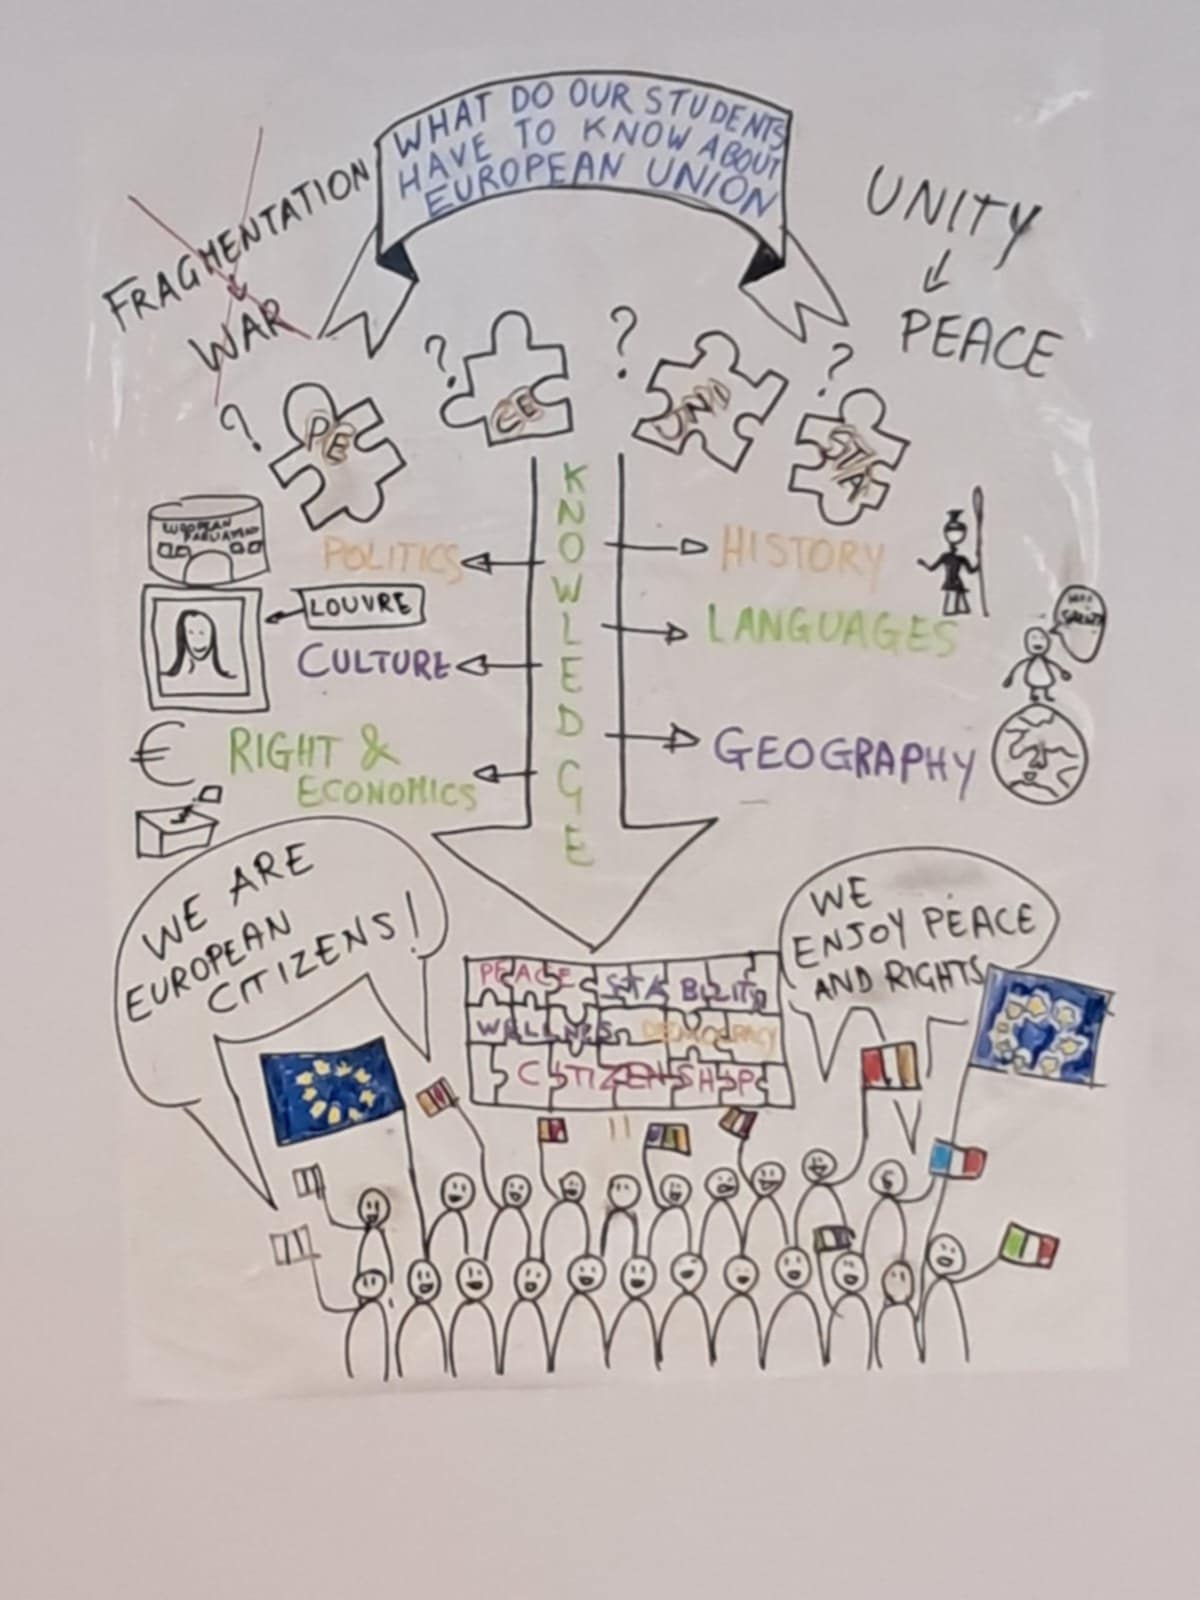 WHAT DO OUR STUDENTS
HAVE TO KNOW ABOUT
EUROPEAN UNION
FRAGMENTATION
WAR
UNITY
PEACE
?
?
?
?
PE
CE
UNI
STA
KNOWLEDGE
EUROPEAN
PARLIAMENT
POLITICS
LOUVRE
CULTURE
€
RIGHT &
ECONOMICS
HISTORY
LANGUAGES
GEOGRAPHY
WE ARE
EUROPEAN
CITIZENS!
WE
ENJOY PEACE
AND RIGHTS
PEACE STABILITY
WELLNES DEMOCRACY
CITIZENSHIP